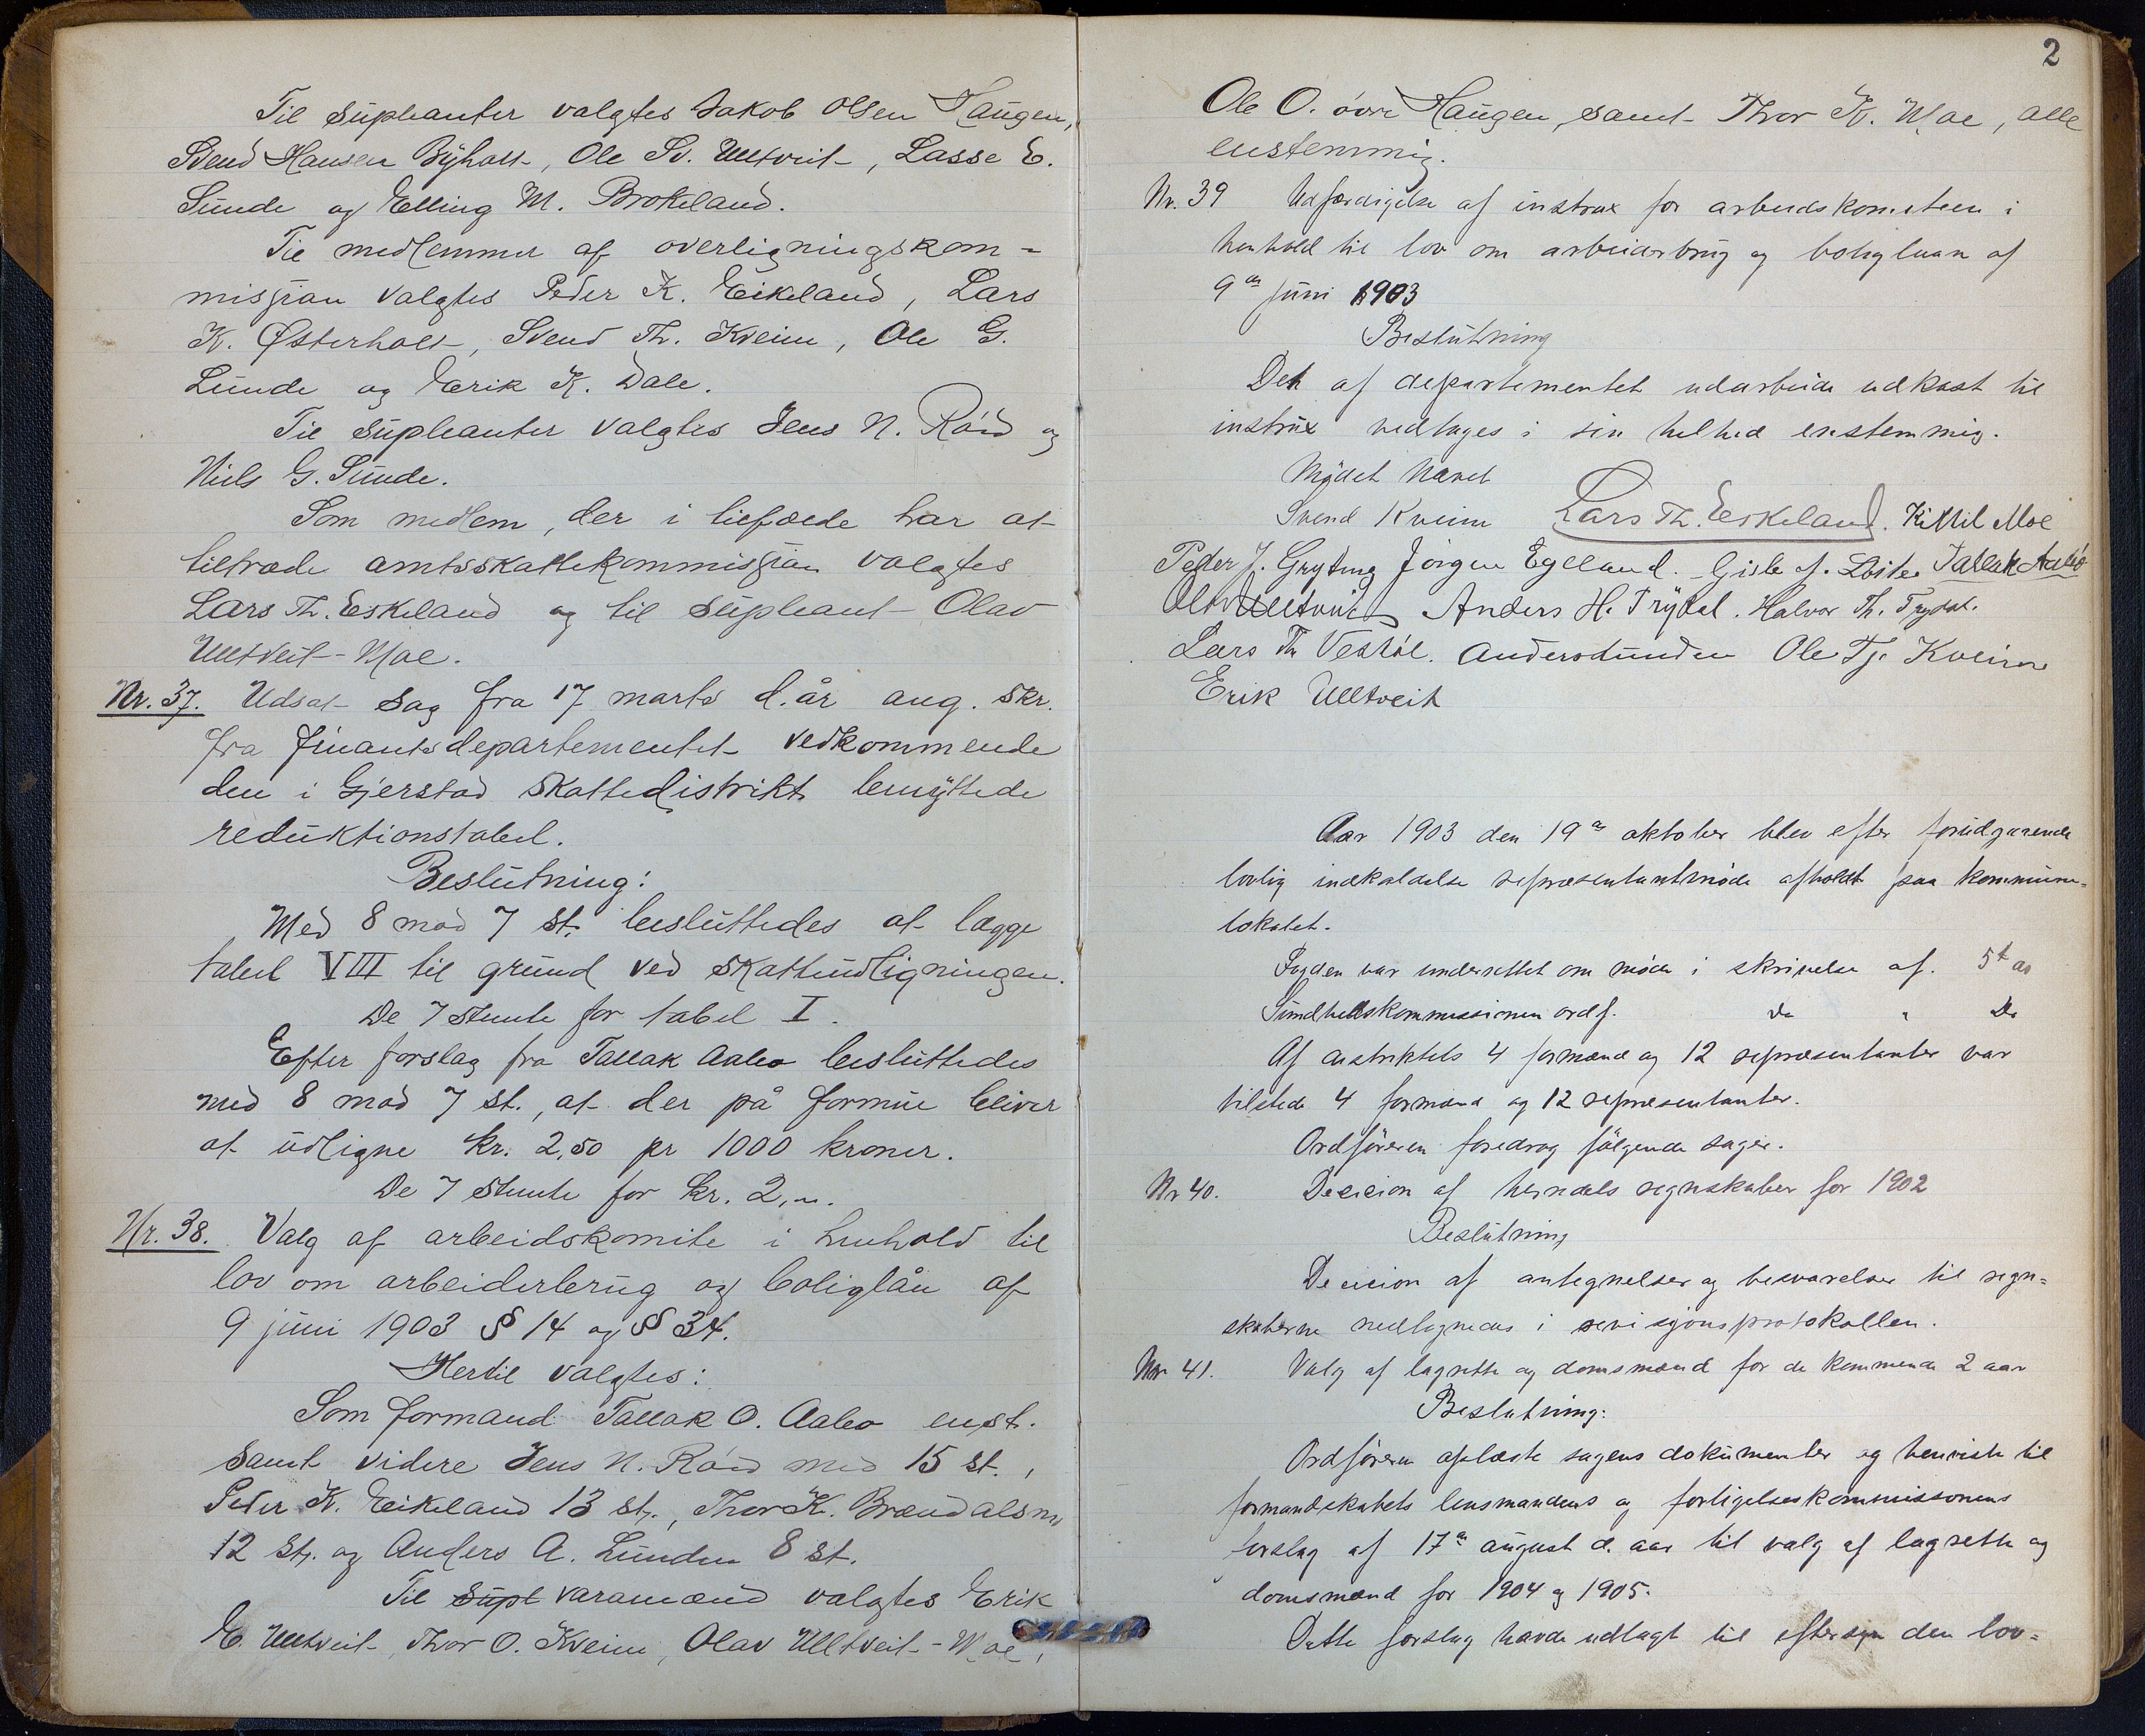 Til supleanter valgtes Jakob Olsen Haugen,
Svend Hansen Byholt, Ole Sv. Ulltveit, Lasse E.
Sunde og Elling M. Brokeland.
Til medlemmer af overligningskom-
missjon valgtes Peder K. Eikeland, Lars
K. Østerholt, Svend Th. Kveim, Ole G.
Lunde og Eerik K. Dale.
Til supleanter valgtes Jens N. Röd og
Niels G. Sunde.
Som medlem, der i tilfælde har at
tiltræde amtsskattekommissjon valgtes
Lars Th. Eskeland og til supleant Olav
Ulltveit-Moe.
Nr. 37. Udsat sag fra 17 marts d. år ang. skr.
fra finantsdepartementet vedkommende
den i Gjerstad skattedistrikt benyttede
reduktionstabel.
Beslutning:
Med 8 mod 7 st. besluttedes at lægge
tabel VIII til grund ved skatteudligningen.
De 7 stemte for tabel I.
Efter forslag fra Tallak Aabø besluttedes
med 8 mod 7 st., at der på formue bliver
at udligne kr. 2,50 pr 1000 kroner.
De 7 stemte for kr. 2,„.
Nr. 38. Valg af arbeidskomite i henhold til
lov om arbeiderbrug og boliglån af
9 juni 1903 § 14 og § 34.
Hertil valgtes:
Som formand Tallak O. Aabø enst.
samt videre Jens N. Röd med 15 st.,
Peder K. Eikeland 13 st., Thor K. Brændalsmo
12 st. og Anders A. Lunden 8 st.
Til supl varamænd valgtes Erik
E. Ulltveit, Thor O. Kveim, Olav Ulltveit-Moe,
2
Ole O. övre Haugen, samt Thor K. Moe, alle
enstemmig.
Nr. 39 Udfærdigelse af instrux for arbeidskomiteen i
henhold til lov om arbeiderbrug og boliglaan af
9de juni 1903
Beslutning
Det af departementet udarbeide udkast til
instrux vedtages i sin helhed enstemmig.
Mødet hævet
Svend Kveim Lars Th. Eskeland. Kittil Moe
Peder J. Gryting Jörgen Egeland. Gisle J. Tallak Aabö
Ole Ulltveit Anders H. Trydal. Halvor Th. Trydal.
Lars Th Vestöl. Anders Lunden Ole Tj. Kveim
Erik Ulltveit
Aar 1903 den 19de oktober blev efter forudgaaende
lovlig indkaldelse repræsentantmøde afholdt paa kommune-
lokalet.
Fogden var underrettet om møde i skrivelse af. 5te ds
Sundhedskommissionen ordf. Do „ Do
Af distriktets 4 formænd og 12 repræsentanter var
tilstede 4 formænd og 12 repræsentanter.
Ordföreren foredrog fölgende sager.
Nr 40. Decision af herredets regnskaber for 1902
Beslutning
Decision af antegnelser og besvarelser til regn-
skaberne nedtegnedes i revisjonsprotokollen.
Nr 41. Valg af lagrette og domsmænd for de kommende 2 aar
Beslutning:
Ordföreren oplæste sagens dokumenter og henviste til
formandskabets lensmandens og forligelseskommissionens
forslag af 17de august d. aar til valg af lagrette og
domsmænd for 1904 og 1905.
Dette forslag havde udlagt til eftersyn den lov-